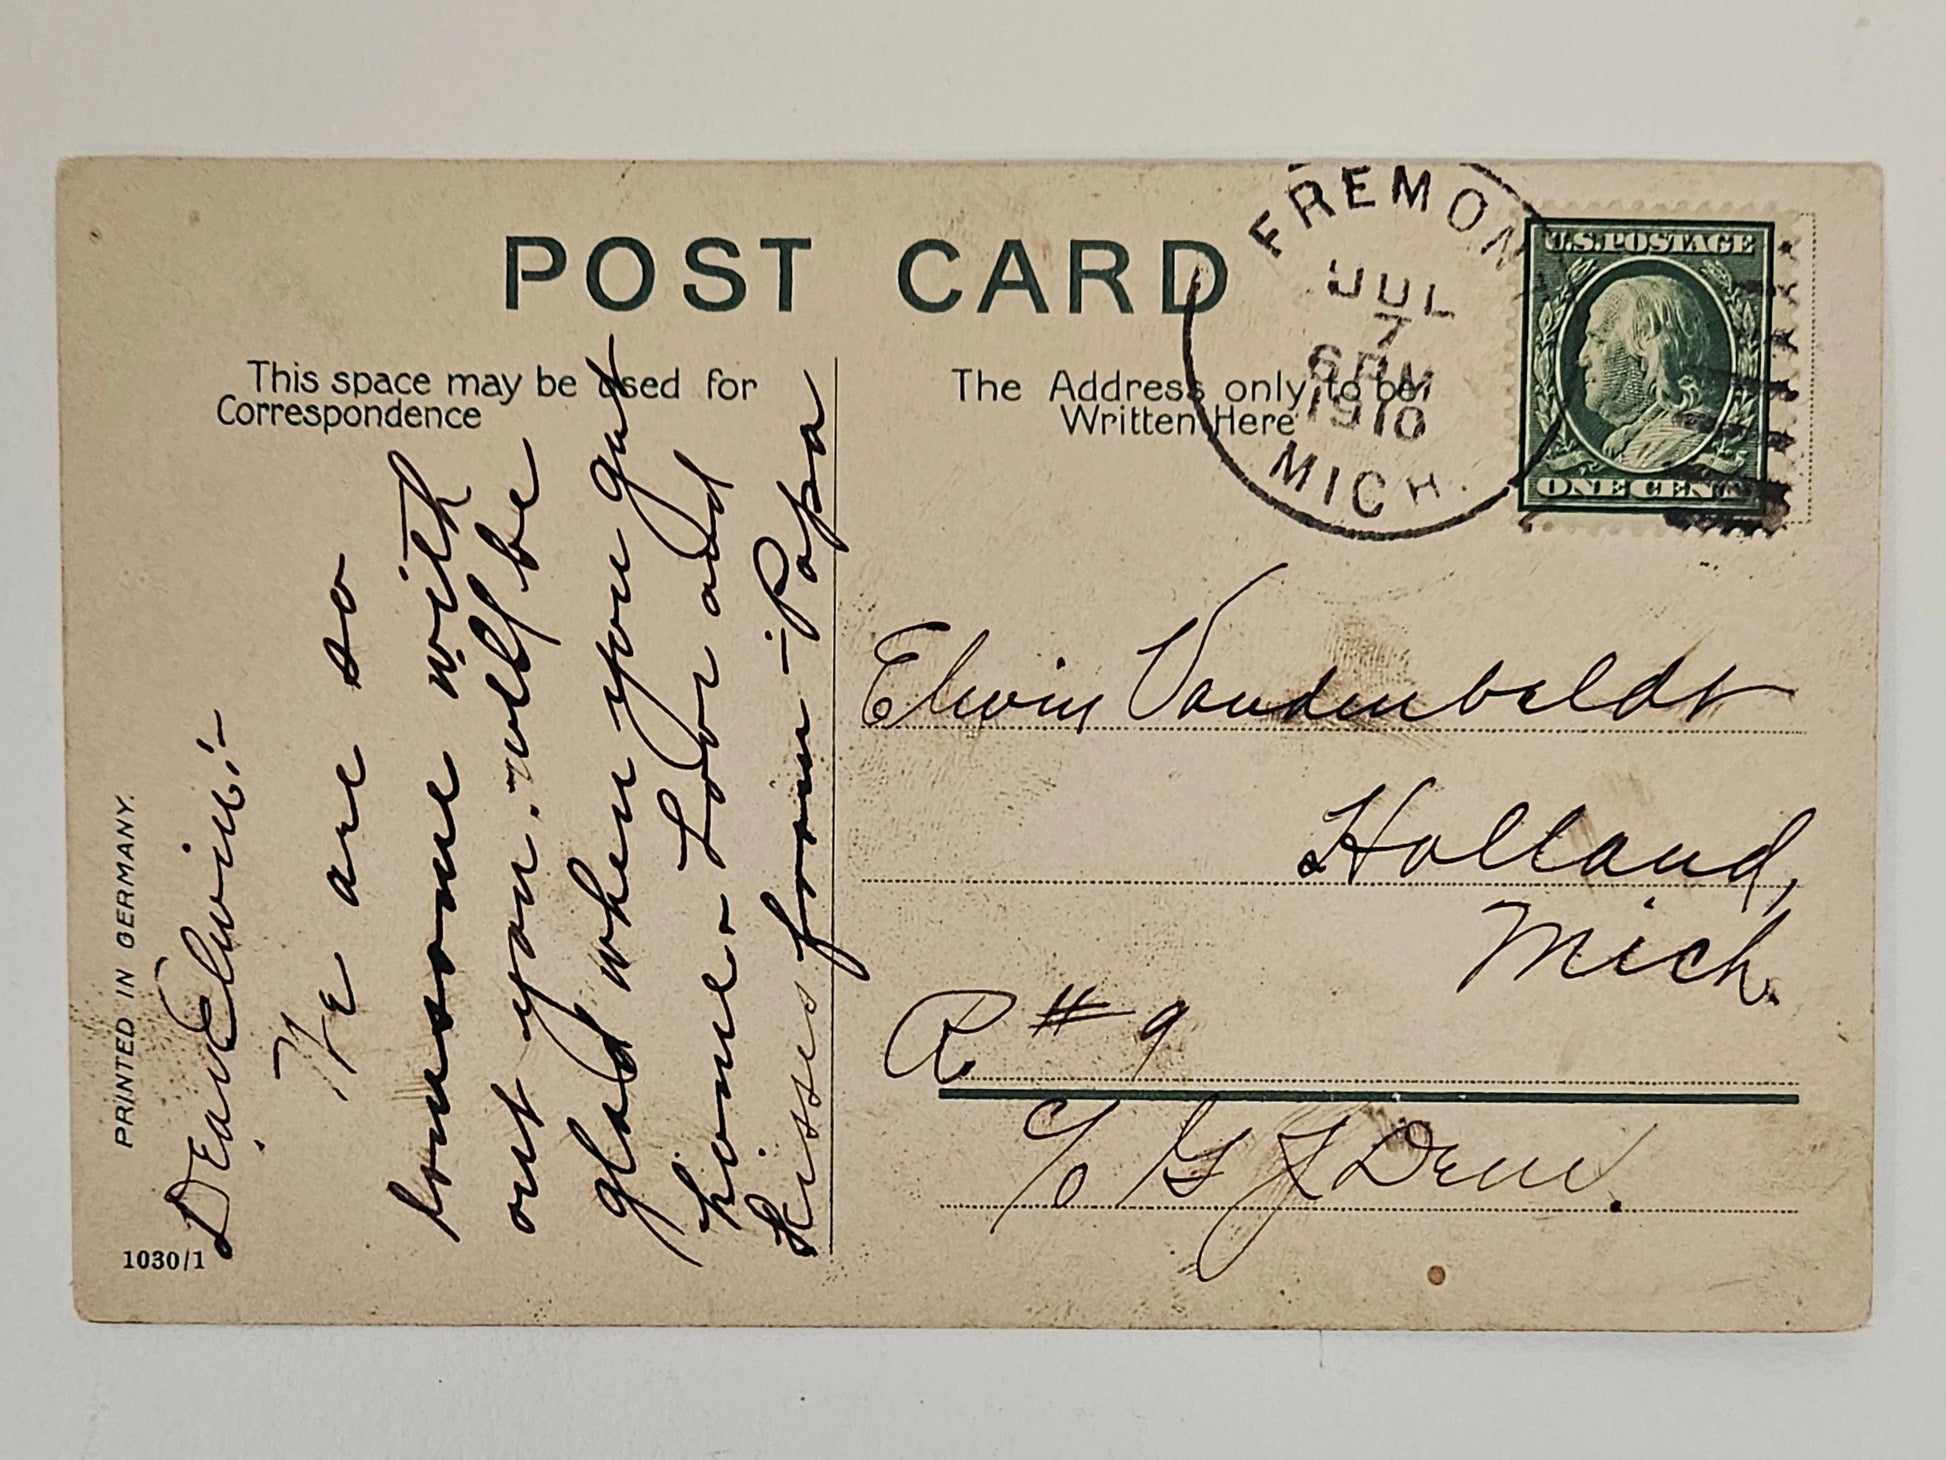 POST CARD
This space may be used for
Correspondence
The Address only to be
Written Here
FREMONT
JUL
7
6 PM
1910
MICH.
U.S. POSTAGE
ONE CENT
PRINTED IN GERMANY.
1030/1
Dear Elwin:-
We are so
lonesome with
out you. will be
glad when you get
home - Love and
kisses from - Papa
Elwin Vandenbeldt
Holland,
Mich.
R. # 9
c/o G J Deur.